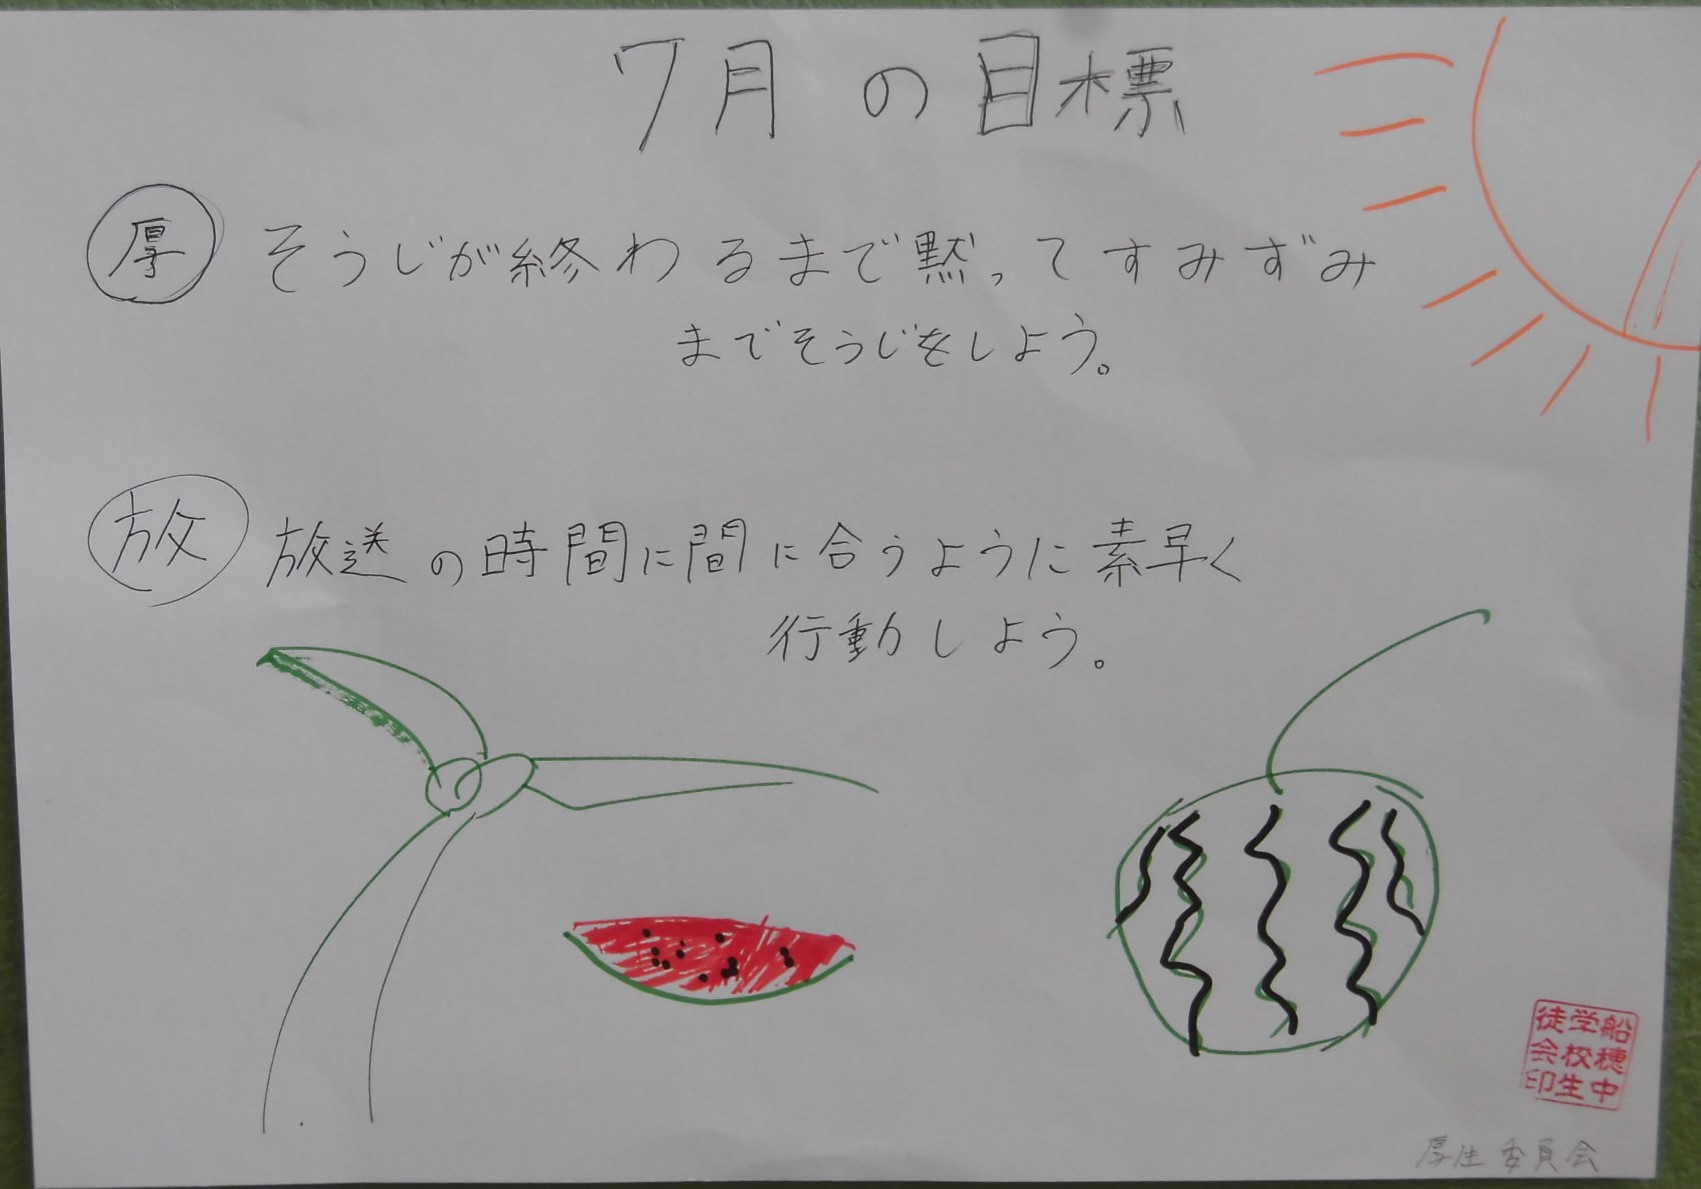 7月の目標
厚 そうじが終わるまで黙ってすみずみ
までそうじをしよう。
放 放送の時間に間に合うように素早く
行動しよう。
船穂中
学校生
徒会印
厚生委員会